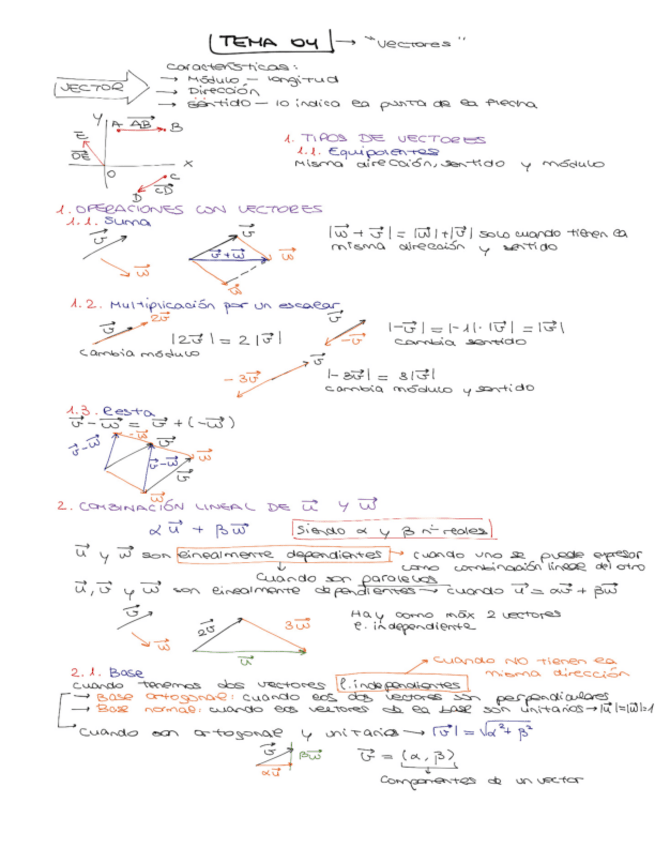 TEMA 04 → "Vectores"
características:
VECTOR
→ Módulo – longitud
→ Dirección
→ sentido – lo indica la punta de la flecha
Y A AB B
E
OE
X
O
C
CD
D
1. TIPOS DE VECTORES
1.1. Equipolentes
misma dirección, sentido y módulo
1. OPERACIONES CON VECTORES
1.1. Suma
v w
v v+w w
w
|w + v| = |w|+|v| solo cuando tienen la
misma dirección y sentido
1.2. Multiplicación por un escalar
v 2v
|2v| = 2|v|
cambia módulo
v -v
|-v| = |-1|· |v| = |v|
cambia sentido
v
-3v
|-3v| = 3|v|
cambia módulo y sentido
1.3. Resta
v - w = v + (-w)
v-w -w v
v-w w
v
w
2. COMBINACIÓN LINEAL DE u Y w
αu + βw siendo α y β nº reales
u y w son linealmente dependientes → cuando uno se puede expresar
como combinación lineal del otro
↓
Cuando son paralelos
u, v y w son linealmente dependientes → cuando u = αv + βw
v
w
2v 3w
u
Hay como máx 2 vectores
l. independiente
2.1. Base
→ Cuando NO tienen la
misma dirección
cuando tenemos dos vectores l. independientes
→ Base ortogonal: cuando los dos vectores son perpendiculares
→ Base normal: cuando los vectores de la base son unitarios → |u|=|w|=1
→ Cuando son ortogonal y unitarios → |v| = √α²+β²
v βw
αu
v = (α, β)
↓
Componentes de un vector